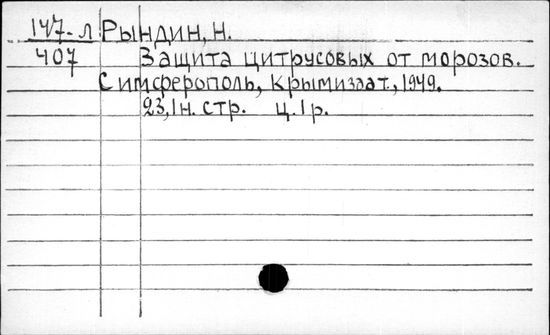 147-л Рындин, Н.
407 Защита цитрусовых от морозов.
Симферополь, Крымиздат, 1949.
23, 1 н. стр. ц. 1 р.